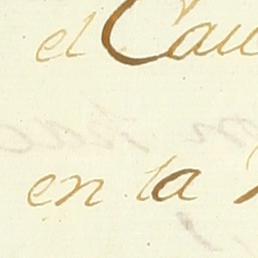 el Cau
en la